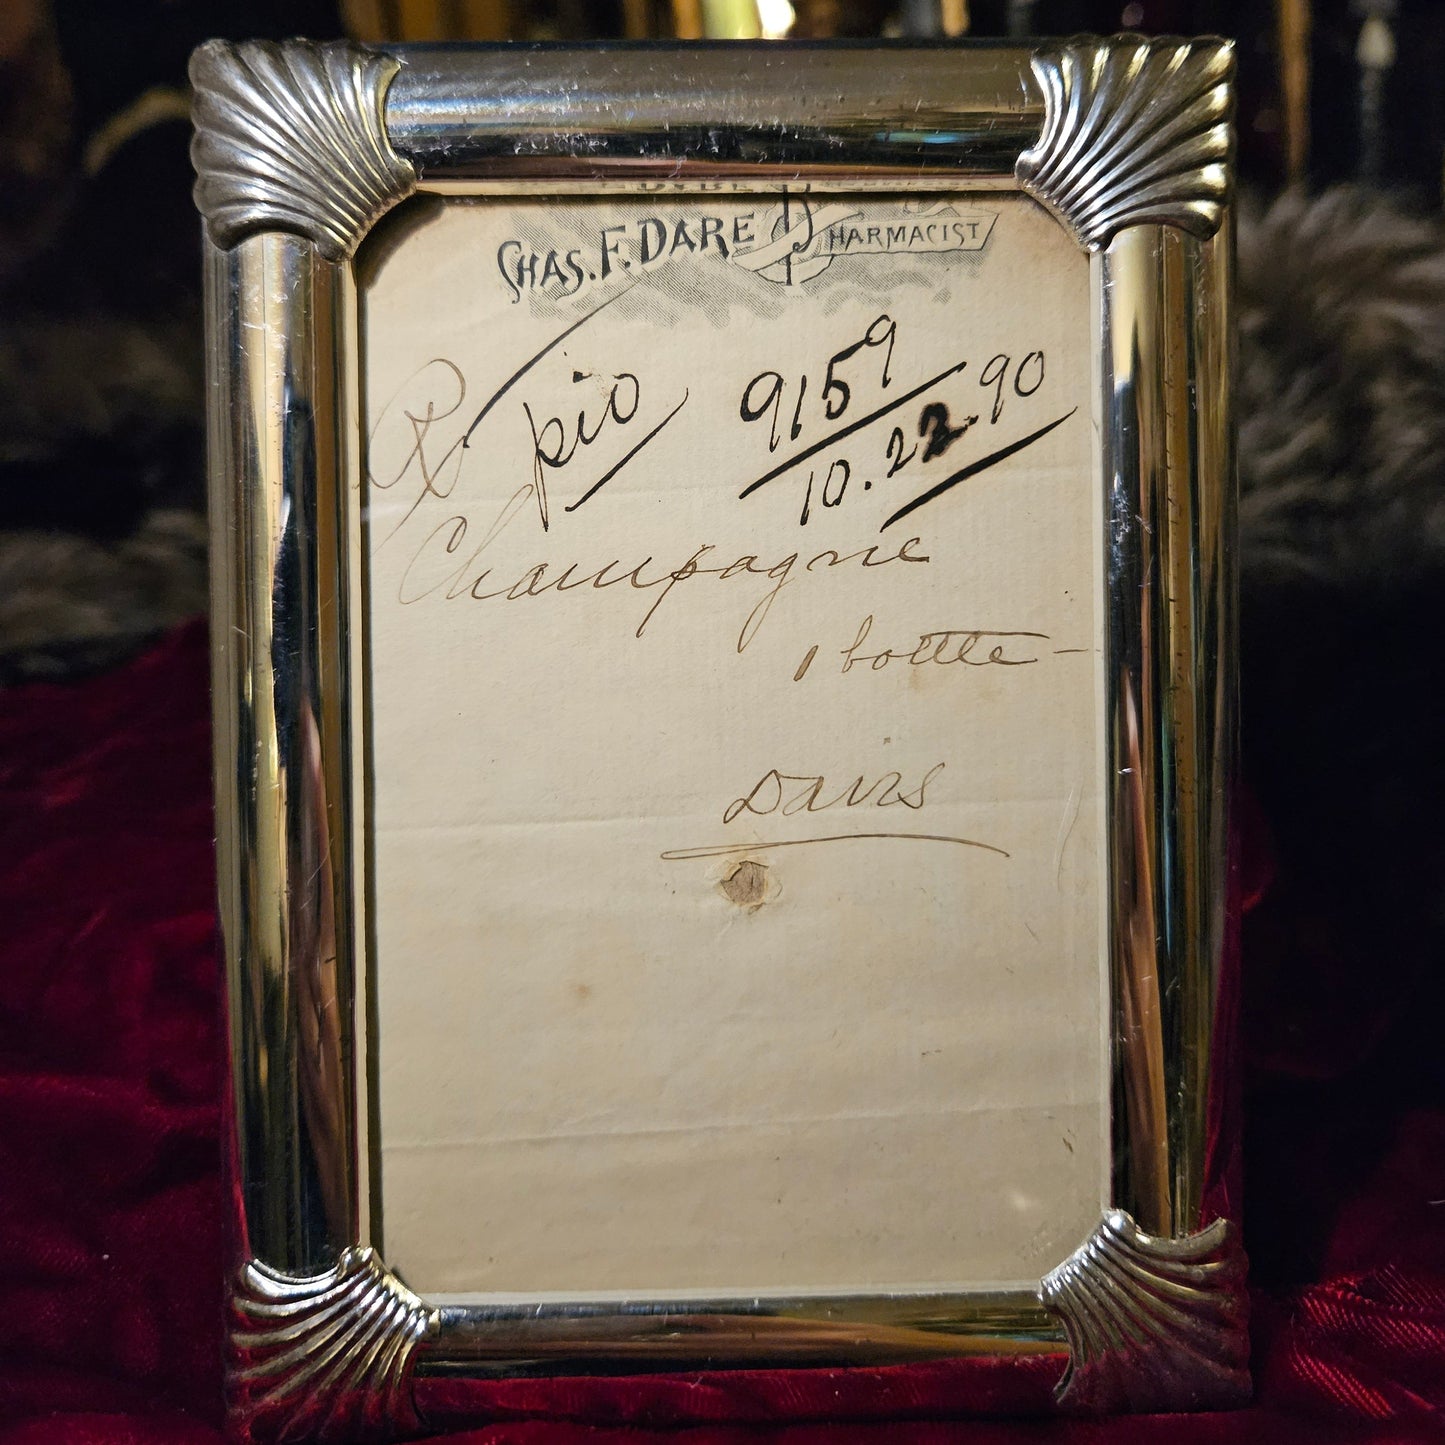 CHAS. F. DARE PHARMACIST
℞ pio 9159
10.22.90
Champagne
1 bottle -
Davis